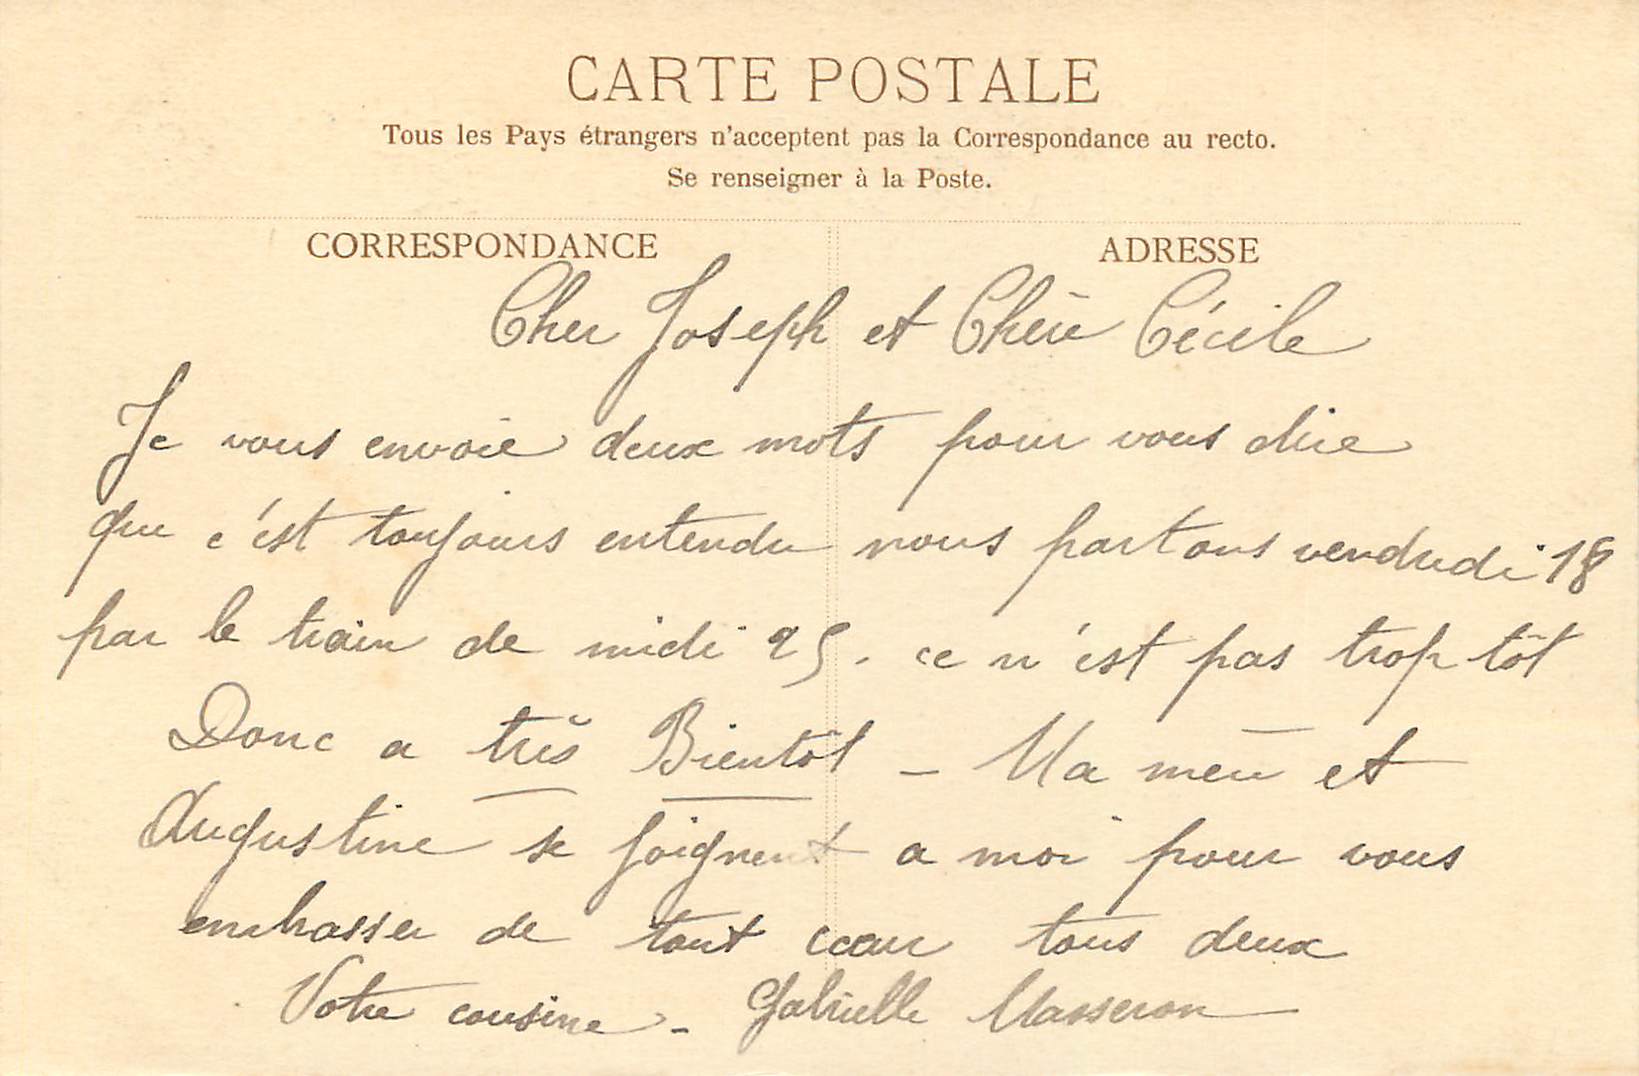 CARTE POSTALE
Tous les Pays étrangers n'acceptent pas la Correspondance au recto.
Se renseigner à la Poste.
CORRESPONDANCE
ADRESSE
Cher Joseph et Chère Cécile
Je vous envoie deux mots pour vous dire
que c'est toujours entendu nous partons vendredi 18
par le train de midi 25. ce n'est pas trop tôt
Donc a très Bientôt – Ma mère et
Augustine se joignent a moi pour vous
embrasser de tout cœur tous deux
Votre cousine - Gabrielle Masseron